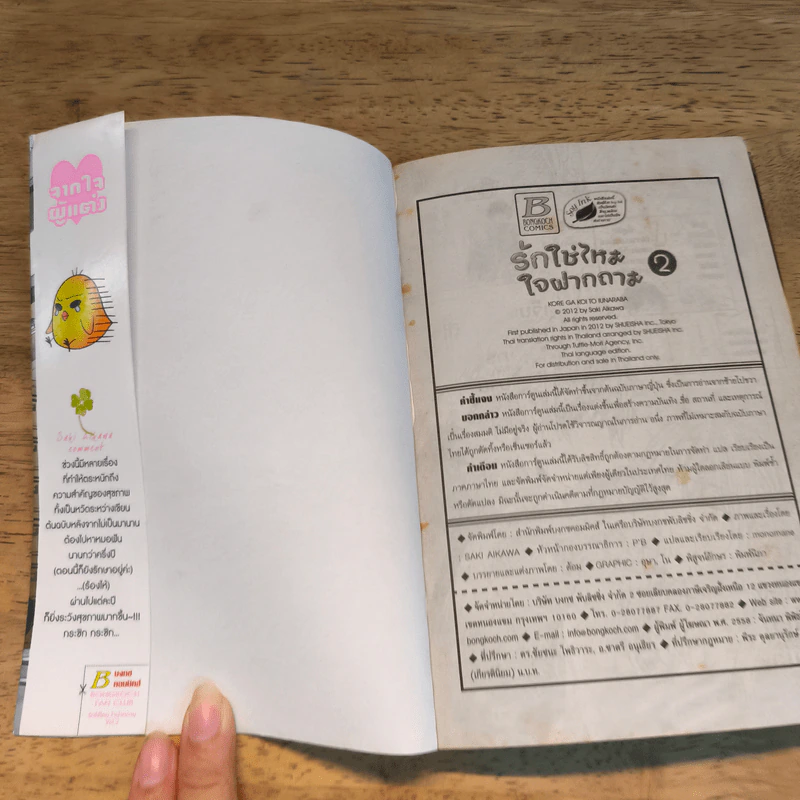 จากใจ
ผู้แต่ง
Saki Aikawa
comment
ช่วงนี้มีหลายเรื่อง
ที่ทำให้ตระหนักถึง
ความสำคัญของสุขภาพ
ทั้งเป็นหวัดระหว่างเขียน
ต้นฉบับหลังจากไม่เป็นมานาน
ต้องไปหาหมอฟัน
นานกว่าครึ่งปี
(ตอนนี้ก็ยังรักษาอยู่ค่ะ)
...(ร้องไห้)
ผ่านไปแต่ละปี
ก็ยิ่งระวังสุขภาพมากขึ้น~!!!
กระซิก กระซิก...
B บงกช
คอมมิคส์
B
BONGKOCH
COMICS
Soy Ink
รักใช่ไหม
ใจฝากถาม 2
KORE GA KOI TO IUNARABA
© 2012 by Saki Aikawa
All rights reserved.
First published in Japan in 2012 by SHUEISHA Inc., Tokyo
Thai translation rights in Thailand arranged by SHUEISHA Inc.
Through Tuttle-Mori Agency, Inc.
Thai language edition.
For distribution and sale in Thailand only.
คำชี้แจง หนังสือการ์ตูนเล่มนี้ได้จัดทำขึ้นจากต้นฉบับภาษาญี่ปุ่น ซึ่งเป็นการอ่านจากซ้ายไปขวา
บอกกล่าว หนังสือการ์ตูนเล่มนี้เป็นเรื่องแต่งขึ้นเพื่อสร้างความบันเทิง ชื่อ สถานที่ และเหตุการณ์
เป็นเรื่องสมมติ ไม่มีอยู่จริง ผู้อ่านโปรดใช้วิจารณญาณในการอ่าน อนึ่ง ภาพที่ไม่เหมาะสมกับฉบับภาษา
ไทยได้ถูกตัดทิ้งหรือเซ็นเซอร์แล้ว
คำเตือน หนังสือการ์ตูนเล่มนี้ได้รับลิขสิทธิ์ถูกต้องตามกฎหมายในการจัดทำ แปล เรียบเรียงเป็น
ภาคภาษาไทย และจัดพิมพ์จัดจำหน่ายแต่เพียงผู้เดียวในประเทศไทย ห้ามผู้ใดลอกเลียนแบบ พิมพ์ซ้ำ
หรือดัดแปลง มิฉะนั้นจะถูกดำเนินคดีตามที่กฎหมายบัญญัติไว้สูงสุด
◆ จัดพิมพ์โดย : สำนักพิมพ์บงกชคอมมิคส์ ในเครือบริษัทบงกชพับลิชชิ่ง จำกัด ◆ ภาพและเรื่องโดย
: SAKI AIKAWA ◆ หัวหน้ากองบรรณาธิการ : P'B ◆ แปลและเรียบเรียงโดย : monomane
◆ บรรยายและแต่งภาพโดย : ต้อม ◆ GRAPHIC : อุษา, โน ◆ พิสูจน์อักษร : พิมพ์นิภา
◆ จัดจำหน่ายโดย : บริษัท บงกช พับลิชชิ่ง จำกัด 2 ซอยเลียบคลองภาษีเจริญฝั่งเหนือ 12 แขวงหนองแขม
เขตหนองแขม กรุงเทพฯ 10160 ◆ โทร. 0-28077887 FAX. 0-28077882 ◆ Web site : www
bongkoch.com ◆ E-mail : info@bongkoch.com ◆ ผู้พิมพ์ ผู้โฆษณา พ.ศ. 2558 :
◆ ที่ปรึกษา : ดร.ชัยชนะ โพธิวาระ, อ.ชาตรี อนุเธียร ◆ ที่ปรึกษากฎหมาย :
(เกียรตินิยม) น.บ.ท.